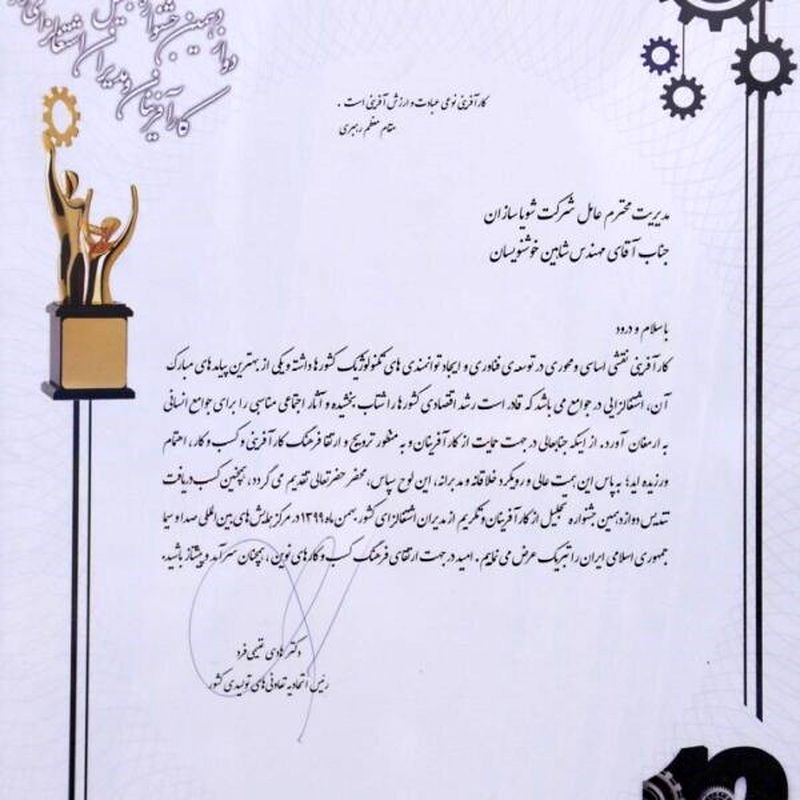 دوازدهمین جشنواره تجلیل
کارآفرینان و مدیران اشتغالزای
کارآفرینی نوعی عبادت و ارزش آفرینی است .
مقام معظم رهبری
مدیریت محترم عامل شرکت شویا سازان
جناب آقای مهندس شاهین خوشنویسان
با سلام و درود
کارآفرینی نقشی اساسی و محوری در توسعه ی فناوری و ایجاد توانمندی های تکنولوژیک کشورها داشته و یکی از بهترین پیامدهای مبارک
آن، اشتغالزایی در جوامع می باشد که قادر است رشد اقتصادی کشورها را شتاب بخشیده و آثار اجتماعی مناسبی را برای جوامع انسانی
به ارمغان آورد. از اینکه جنابعالی در جهت حمایت از کارآفرینان و به منظور ترویج و ارتقا فرهنگ کارآفرینی و کسب و کار، اهتمام
ورزیده اید؛ به پاس این همت عالی و رویکرد خلاقانه و مدبرانه، این لوح سپاس، محضر حضرتعالی تقدیم می گردد، همچنین کسب دریافت
تندیس دوازدهمین جشنواره تجلیل از کارآفرینان و تکریم از مدیران اشتغالزای کشور بهمن ماه ۱۳۹۹ در مرکز همایش های بین المللی صدا و سیما
جمهوری اسلامی ایران را تبریک عرض می نماییم. امید در جهت ارتقای فرهنگ کسب و کارهای نوین، همچنان سرآمد و پیشتاز باشید.
دکتر هادی
رئیس اتحادیه تعاونی های تولیدی کشور
12